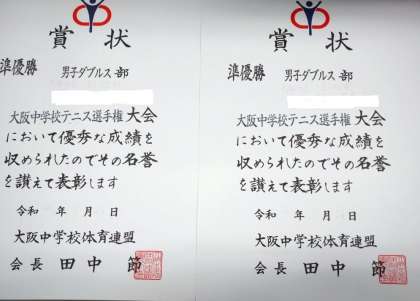 賞状
準優勝 男子ダブルス部
大阪中学校テニス選手権大会
において優秀な成績を
収められたのでその名誉
を讃えて表彰します
令和 年 月 日
大阪中学校体育連盟
会長 田中 節
賞状
準優勝 男子ダブルス部
大阪中学校テニス選手権大会
において優秀な成績を
収められたのでその名誉
を讃えて表彰します
令和 年 月 日
大阪中学校体育連盟
会長 田中 節